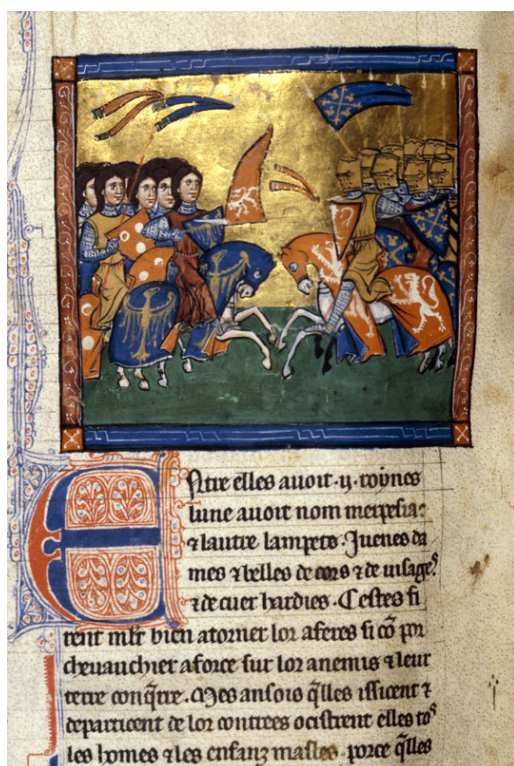 Entre elles auoit .ij. roynes
lune auoit nom merpesia
⁊ lautre lampeto. Juenes da
mes ⁊ belles de cors ⁊ de uisage
⁊ de cuer hardies. Cestes fi
rent mlt bien atorner lor aferes si cō por
cheuauchier a force sur lor anemis ⁊ leur
terre conq̃rre. Mes ansois q̃lles ississent ⁊
departicent de lor contrees ocistrent elles toˢ
les homes ⁊ les enfanz masles. porce q̃lles